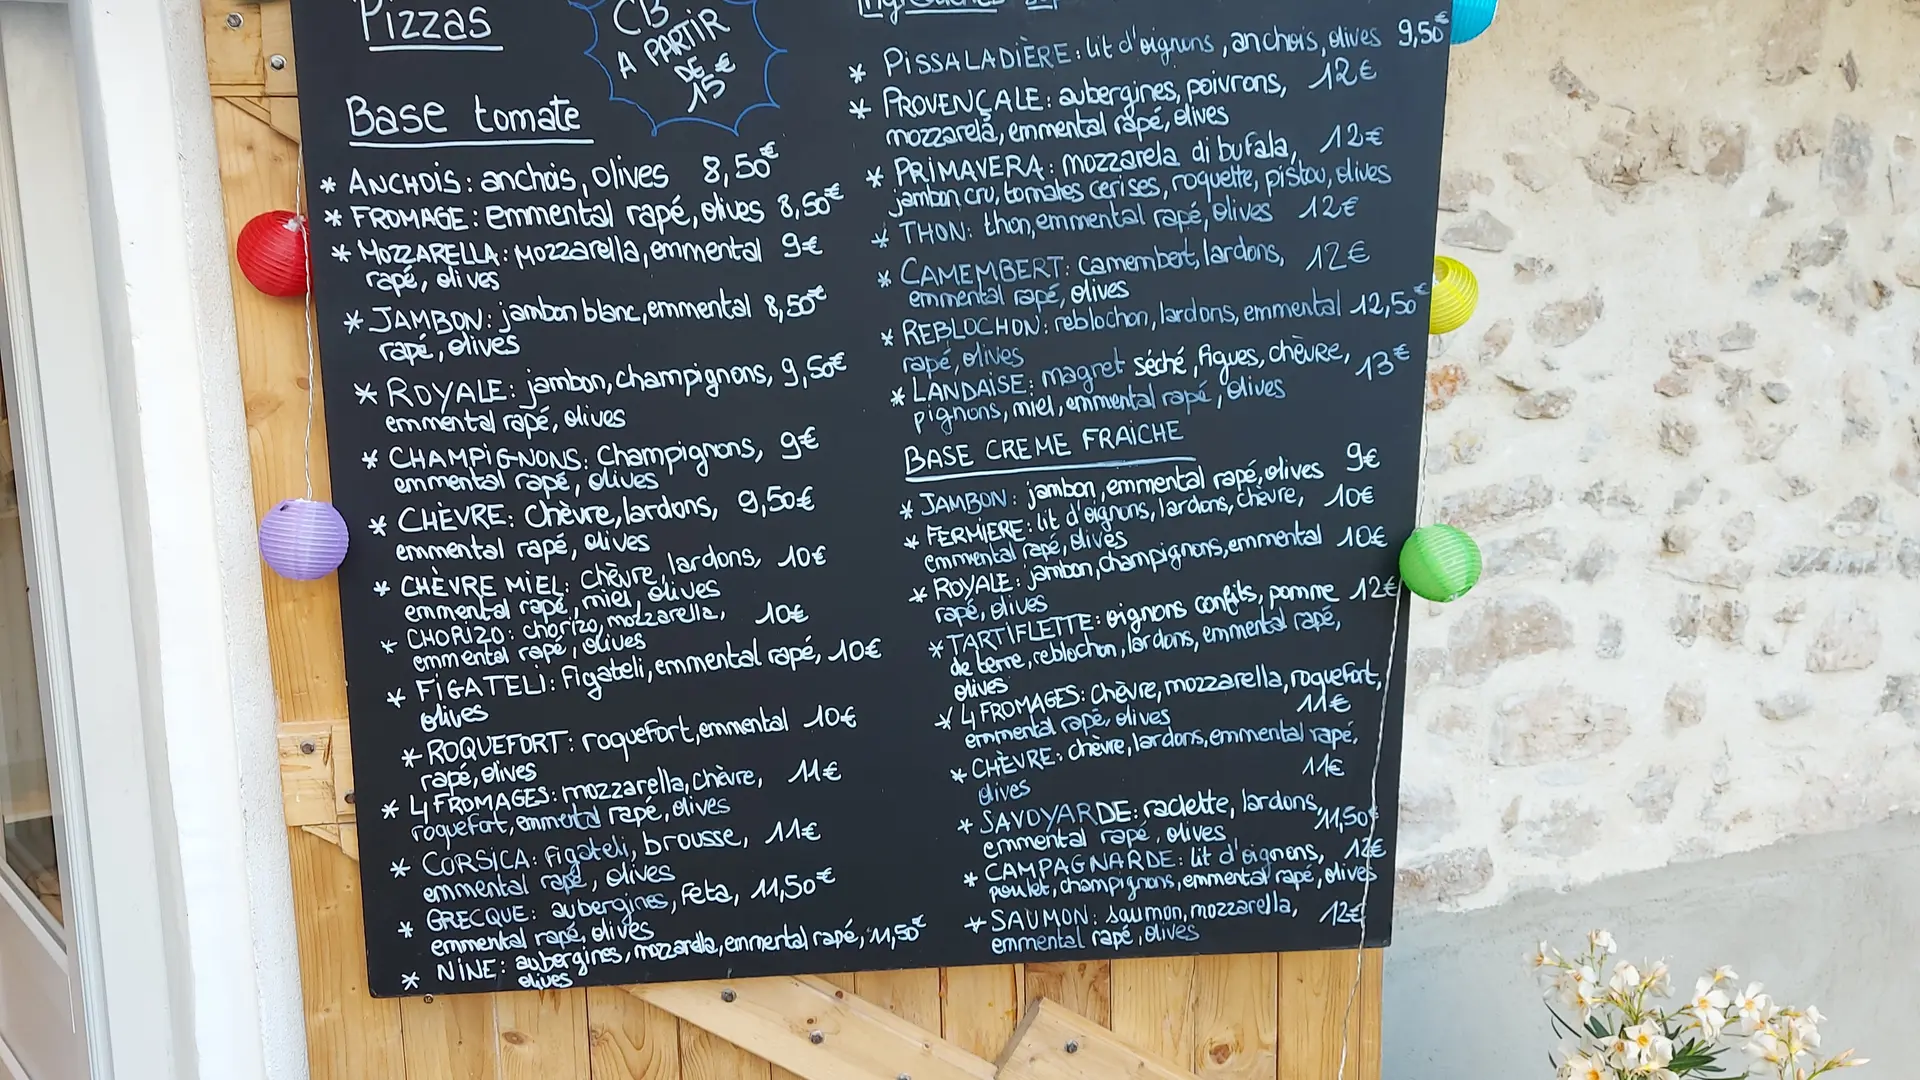 Pizzas
CB
A PARTIR
DE
15€
Base tomate
* ANCHOIS : anchois, olives 8,50€
* FROMAGE : emmental rapé, olives 8,50€
* MOZZARELLA : mozzarella, emmental 9€
rapé, olives
* JAMBON : jambon blanc, emmental 8,50€
rapé, olives
* ROYALE : jambon, champignons, 9,50€
emmental rapé, olives
* CHAMPIGNONS : Champignons, 9€
emmental rapé, olives
* CHÈVRE : Chèvre, lardons, 9,50€
emmental rapé, olives
* CHÈVRE MIEL : chèvre, lardons, 10€
emmental rapé, miel, olives
* CHORIZO : chorizo, mozzarella, 10€
emmental rapé, olives
* FIGATELI : Figateli, emmental rapé, 10€
olives
* ROQUEFORT : roquefort, emmental 10€
rapé, olives
* 4 FROMAGES : mozzarella, chèvre, 11€
roquefort, emmental rapé, olives
* CORSICA : Figateli, brousse, 11€
emmental rapé, olives
* GRECQUE : aubergines, Feta, 11,50€
emmental rapé, olives
* NINE : aubergines, mozzarella, emmental rapé, 11,50€
olives
* PISSALADIÈRE : lit d'oignons, anchois, olives 9,50€
* PROVENÇALE : aubergines, poivrons, 12€
mozzarela, emmental rapé, olives
* PRIMAVERA : mozzarela di bufala, 12€
jambon cru, tomates cerises, roquette, pistou, olives
* THON : thon, emmental rapé, olives 12€
* CAMEMBERT : camembert, lardons, 12€
emmental rapé, olives
* REBLOCHON : reblochon, lardons, emmental 12,50€
rapé, olives
* LANDAISE : magret séché, figues, chèvre, 13€
pignons, miel, emmental rapé, olives
BASE CREME FRAICHE
* JAMBON : jambon, emmental rapé, olives 9€
* FERMIERE : lit d'oignons, lardons, chèvre, 10€
emmental rapé, olives
* ROYALE : jambon, champignons, emmental 10€
rapé, olives
* TARTIFLETTE : oignons confits, pomme 12€
de terre, reblochon, lardons, emmental rapé,
olives
* 4 FROMAGES : chèvre, mozzarella, roquefort,
emmental rapé, olives 11€
* CHÈVRE : chèvre, lardons, emmental rapé,
olives 11€
* SAVOYARDE : raclette, lardons, 11,50€
emmental rapé, olives
* CAMPAGNARDE : lit d'oignons, 12€
poulet, champignons, emmental rapé, olives
* SAUMON : saumon, mozzarella, 12€
emmental rapé, olives